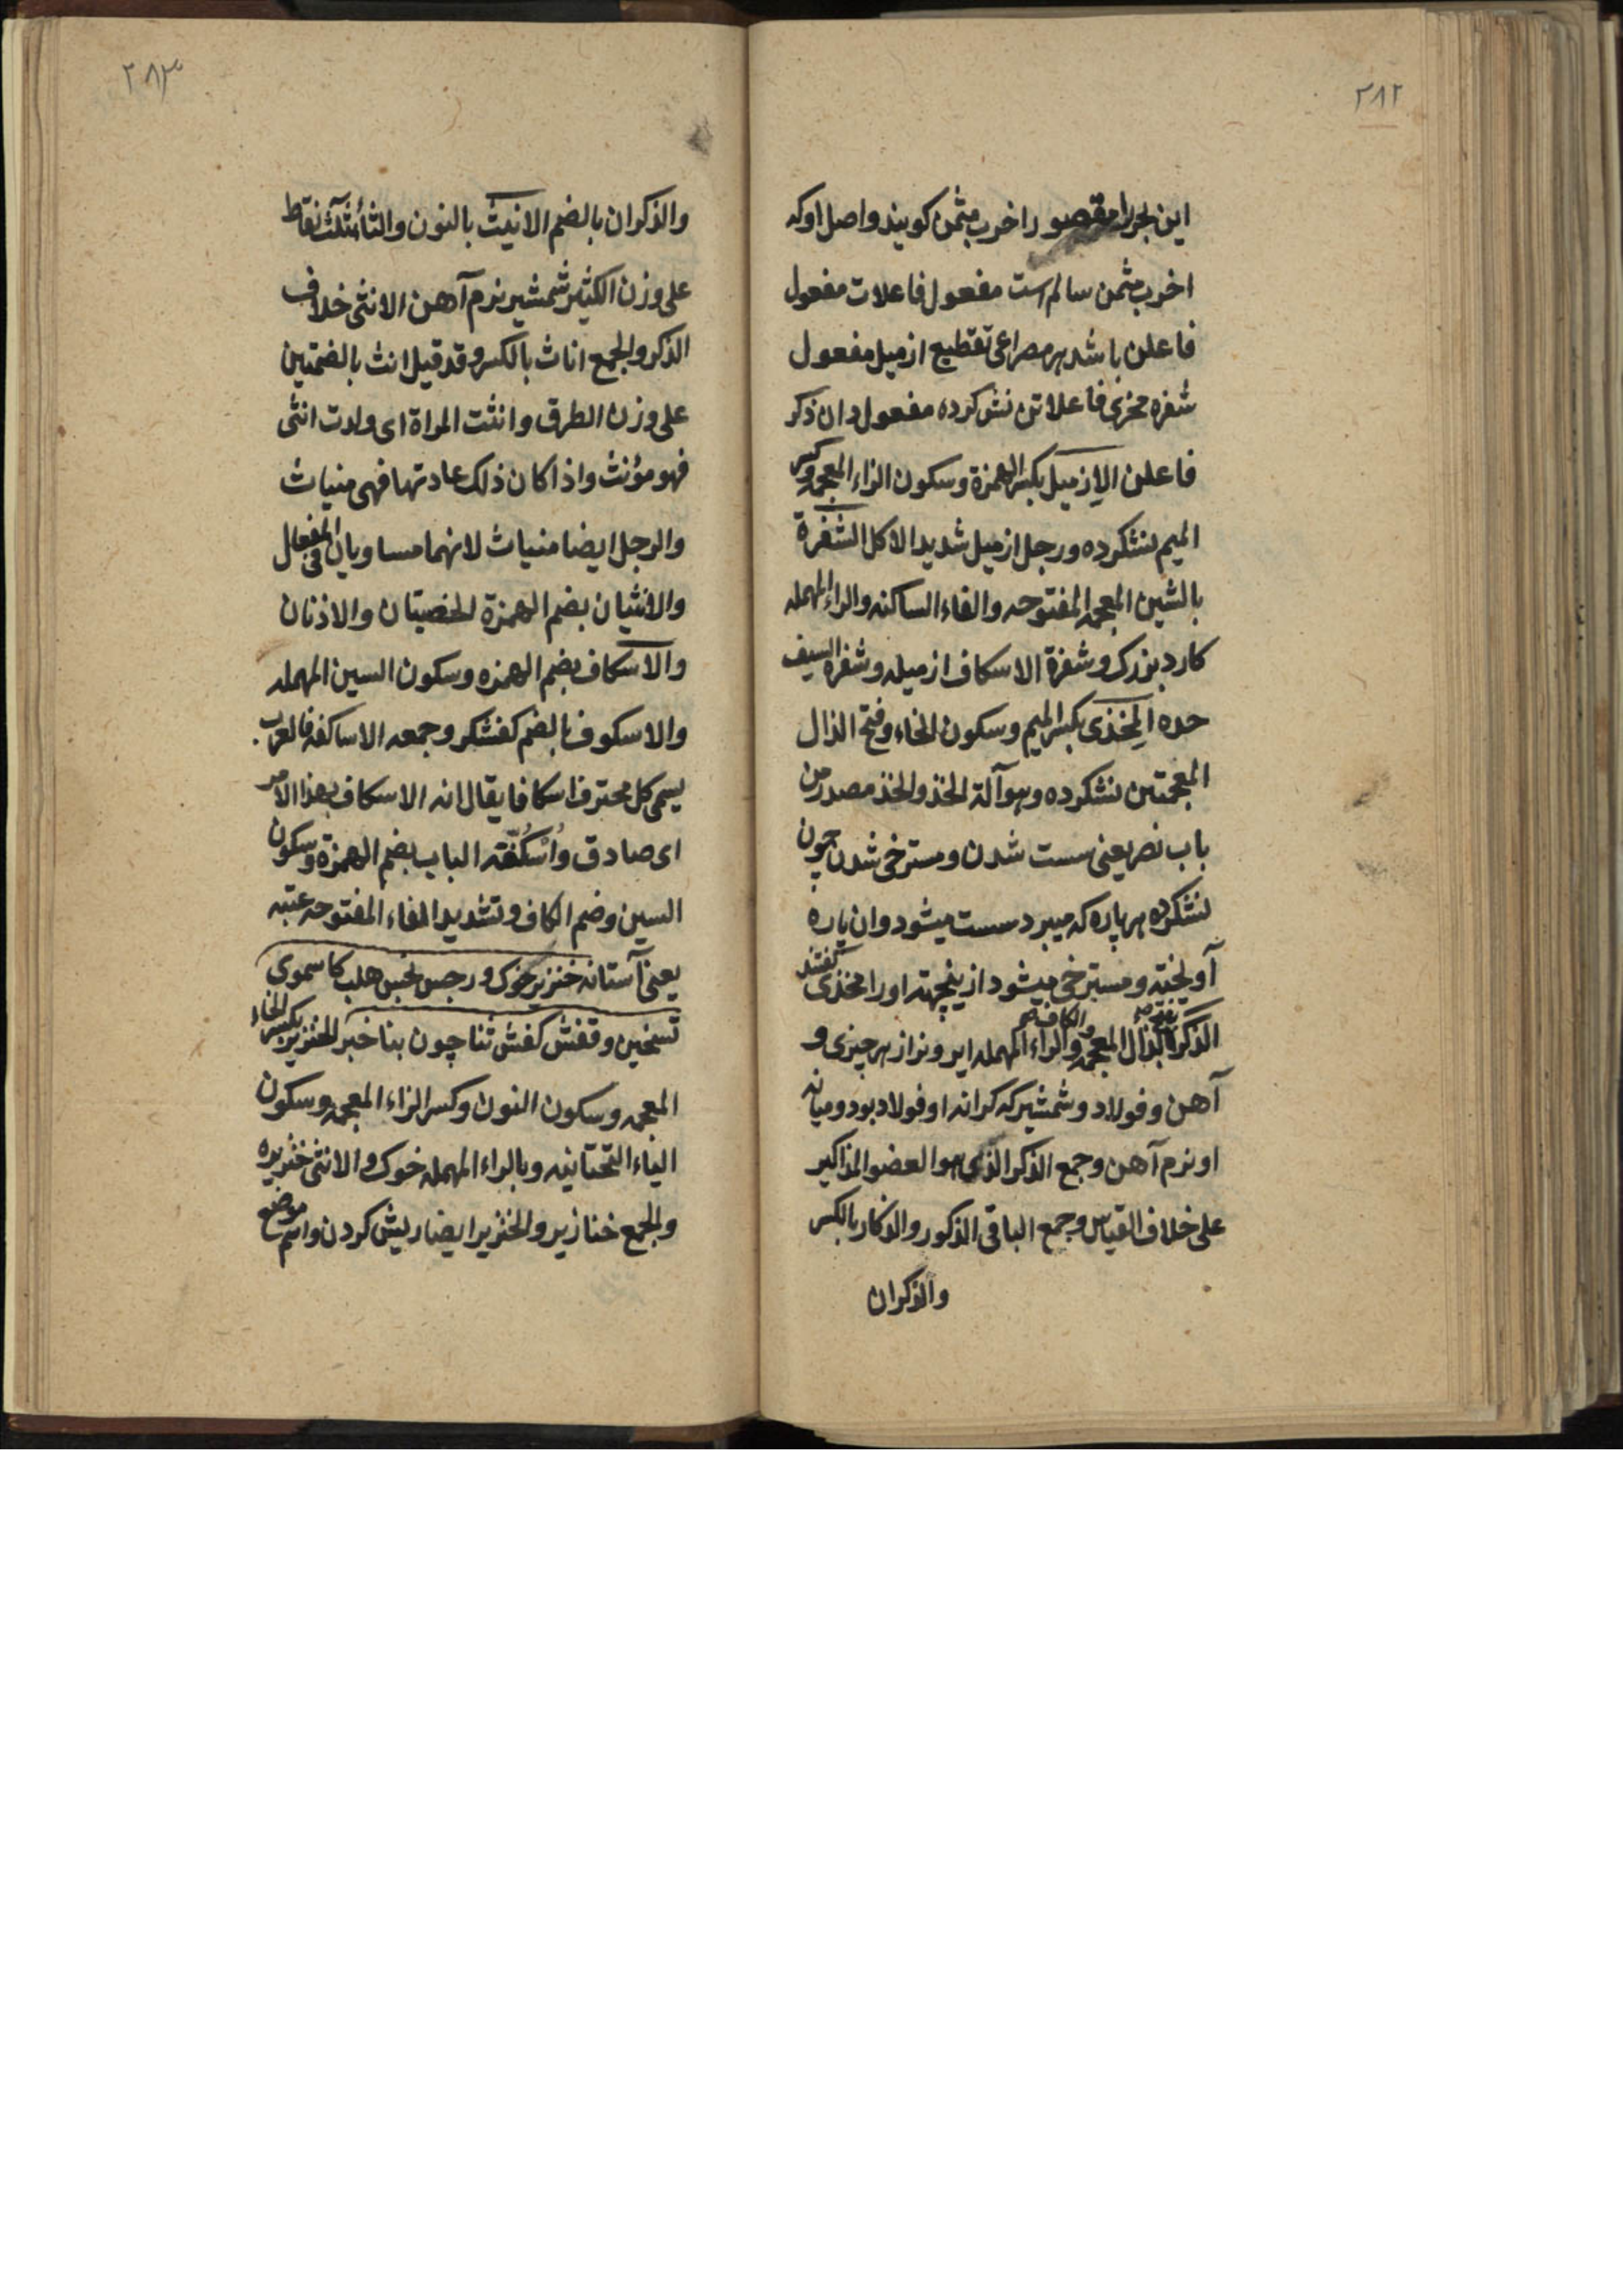 ٢٨٢
این بحر را مقصور اخرب مثمن کویند و اصل او که
اخرب مثمن سالم است مفعول فاعلات مفعول
فاعلن باشد هر مصراعی تقطیع ازمیل مفعول
شفره مخزی فاعلاتن نشکرده مفعول دان ذکر
فاعلن الاِزمیل بکسر الهمزة وسکون الزاء المعجمه وکسر
المیم نشکرده ورجل ازمیل شدید الاکل الشَفرة
بالشین المعجمه المفتوحه والفاء الساکنه والراء المهمله
کارد بزرک وشفرة الاسکاف ازمیله وشفره السیف
حده المِخذی بکسر المیم وسکون الخاء وفتح الذال
المعجمتین نشکرده وهو آلة الخذو الخذ مصدر من
باب نصر یعنی سست شدن ومسترخی شدن چون
نشکرده هر پاره که میبرد سست میشود وان پاره
آویخته ومسترخی میشود ازینجهته اورا مخذی کفتند
الذکر بالذال المعجمه والکاف والراء المهمله ایر ونر از هر چیزی و
آهن وفولاد وشمشیر که کرانه او فولاد بود ومیانه
او نرم آهن وجمع الذکر الذی هو العضو المذاکیر
علی خلاف القیاس وجمع الباقی الذکور والذکار بالکسر
والذکران
٢٨٣
والذکران بالضم الانیث بالنون والثاء مثلث نقاط
علی وزن الکثیر شمشیر نرم آهن الانثی خلاف
الذکر والجمع اناث بالکسر وقد قیل انث بالضمتین
علی وزن الطرق وانثت المراة ای ولدت انثی
فهو مؤنث واذا کان ذلک عادتها فهی منیاث
والرجل ایضا منیاث لانهما مساویان فی المفعال
والانثیان بضم الهمزة الخصیتان والاذنان
والاسکاف بضم الهمزه وسکون السین المهمله
والاسکوف بالضم کفشکر وجمعه الاساکفه فالعرب
یسمی کل محترف اسکافا یقال انه الاسکاف بهذا الامر
ای صادق واُسْکُفّته الباب بضم الهمزة وسکون
السین وضم الکاف وتشدید الفاء المفتوحه عتبه
یعنی آستانه خنزیر خوک ورجس نجس هلب کاسموی
تسخین وقفش کفش ثنا چون بنا خبر الخنزیر بکسر الخاء
المعجمه وسکون النون وکسر الزاء المعجمه وسکون
الیاء التحتانیه وبالراء المهمله خوک والانثی خنزیره
والجمع خنازیر والخنزیر ایضا ریش کردن واسم موضع